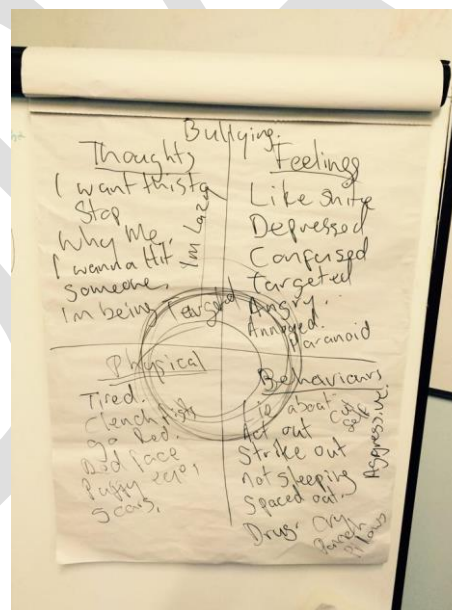 Bullying.
Thoughts
I want this to
Stop
Why Me,
I wanna Hit
Someone,
Im being Targeted
Im Lazy
Feelings
Like shite
Depressed
Confused
Targeted
Angry..
Annoyed.
Paranoid
Physical
Tired.
Clench fists
go Red.
Bad face
Puffy eyes,
Scars,
Behaviours
Lie about
Cut self
Aggressive.
Act out
Strike out
not sleeping
Spaced out.
Drugs
Cry
Punch
Pillows